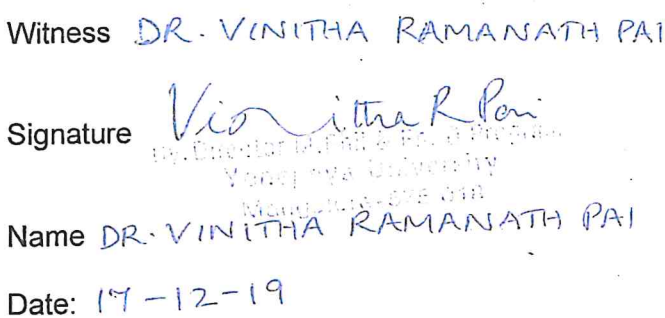 Witness DR. VINITHA RAMANATH PAI
Signature Vinitha R Pai
Dy. Director
University
Name DR. VINITHA RAMANATH PAI
Date: 17-12-19